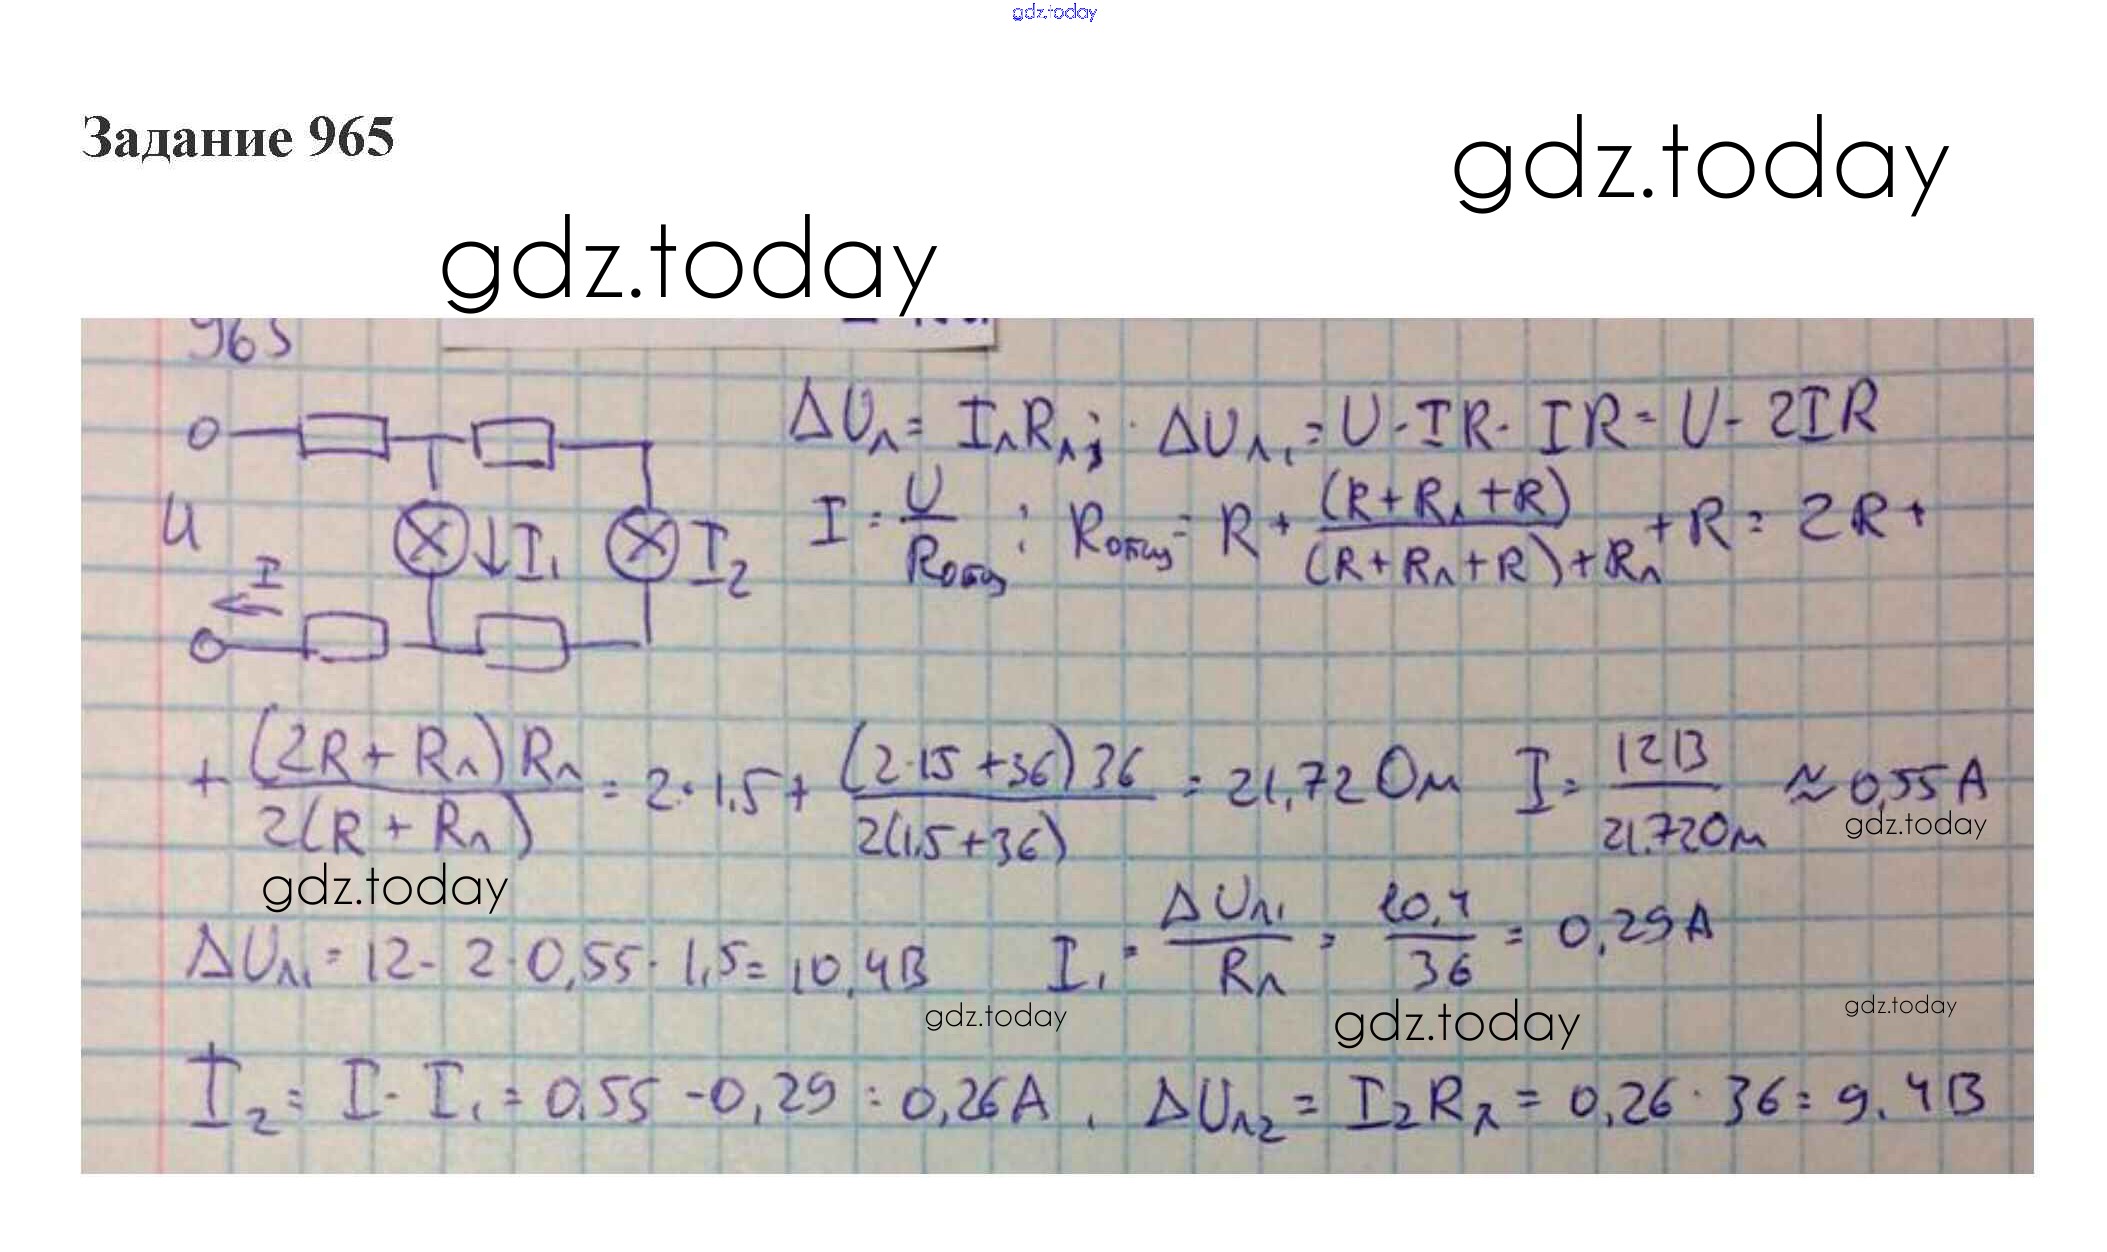 gdz.today
Задание 965
gdz.today
gdz.today
965
ΔUл = IлRл; ΔUл₁ = U - IR - IR = U - 2IR
I = U/Rобщ ; Rобщ = R + (R+Rл+R)/((R+Rл+R)+Rл) + R = 2R +
U I I₁ I₂
+ (2R + Rл)Rл/2(R + Rл) = 2·1,5 + (2·15+36)36/2(1,5+36) = 21,72 Ом I = 12В/21.72Ом ≈ 0,55 А
gdz.today
gdz.today
ΔUл₁ = 12 - 2·0,55·1,5 = 10,4В I₁ = ΔUл₁/Rл = 10,4/36 = 0,29А
gdz.today
gdz.today
gdz.today
I₂ = I - I₁ = 0,55 - 0,29 = 0,26А , ΔUл2 = I₂Rл = 0,26·36 = 9.4В